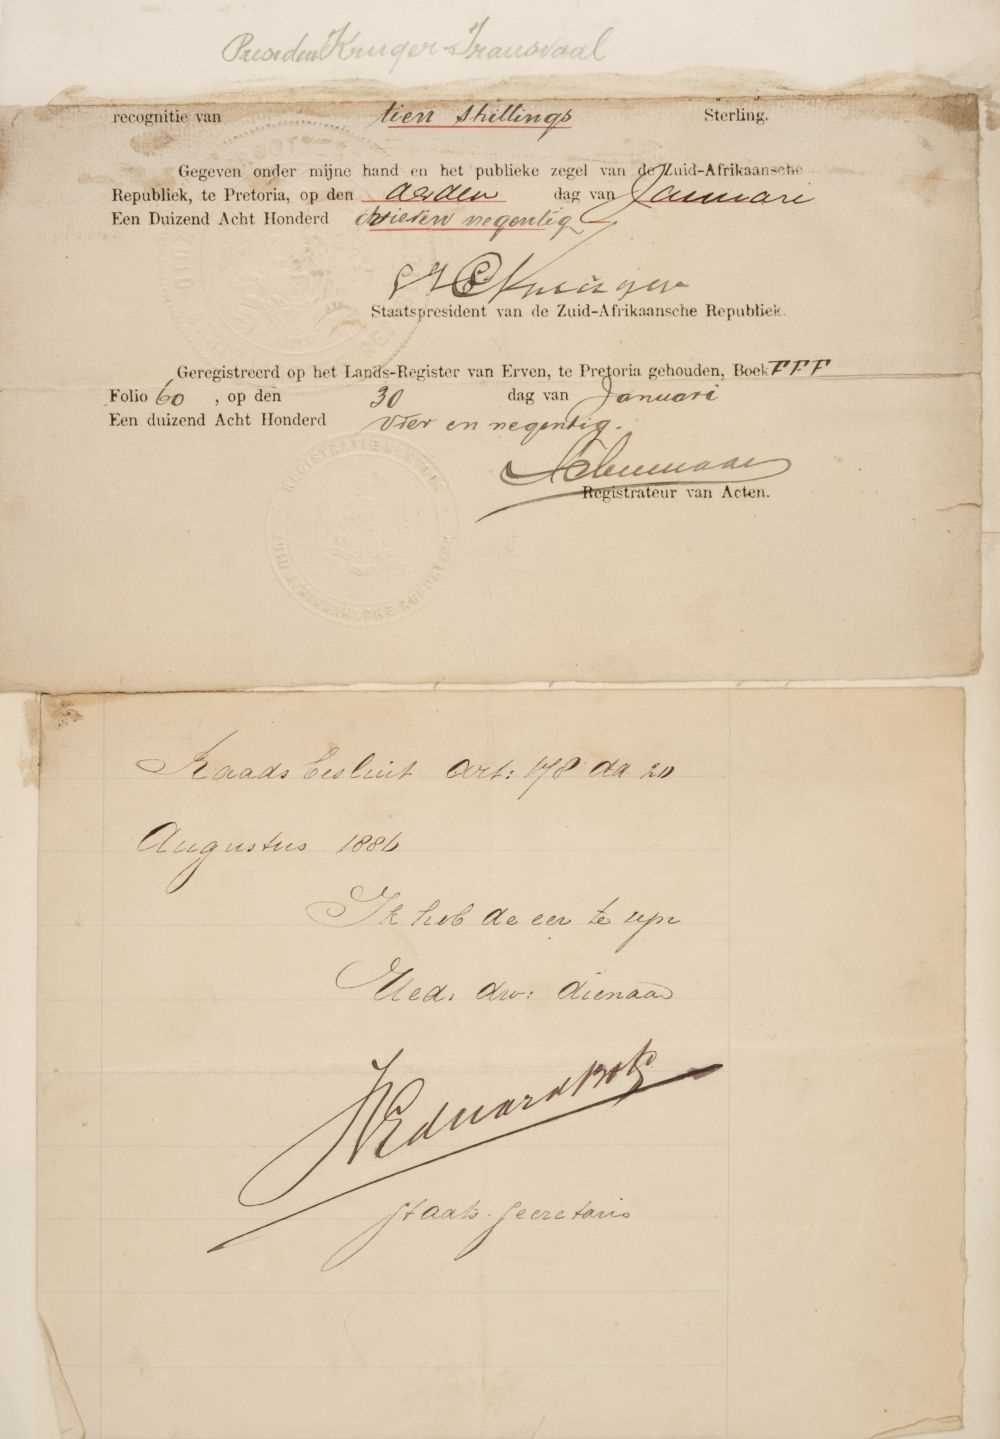 Presiden Kruger Transvaal
recognitie van tien shillings Sterling.
Gegeven onder mijne hand en het publieke zegel van de Zuid-Afrikaansche
Republiek, te Pretoria, op den derden dag van Januari
Een Duizend Acht Honderd vieren negentig
S J P Kruger
Staatspresident van de Zuid-Afrikaansche Republiek.
Geregistreerd op het Lands-Register van Erven, te Pretoria gehouden, Boek FFF
Folio 60, op den 30 dag van Januari
Een duizend Acht Honderd vier en negentig.
Registrateur van Acten.
REGISTRATIE
ZUID AFRIKAANSCHE REPUBLIEK
Raads besluit Art: 178 dd 20
Augustus 1886
Ik heb de eer te zijn
UEd. dw: dienaar
W Eduard Bok
Staats Secretaris